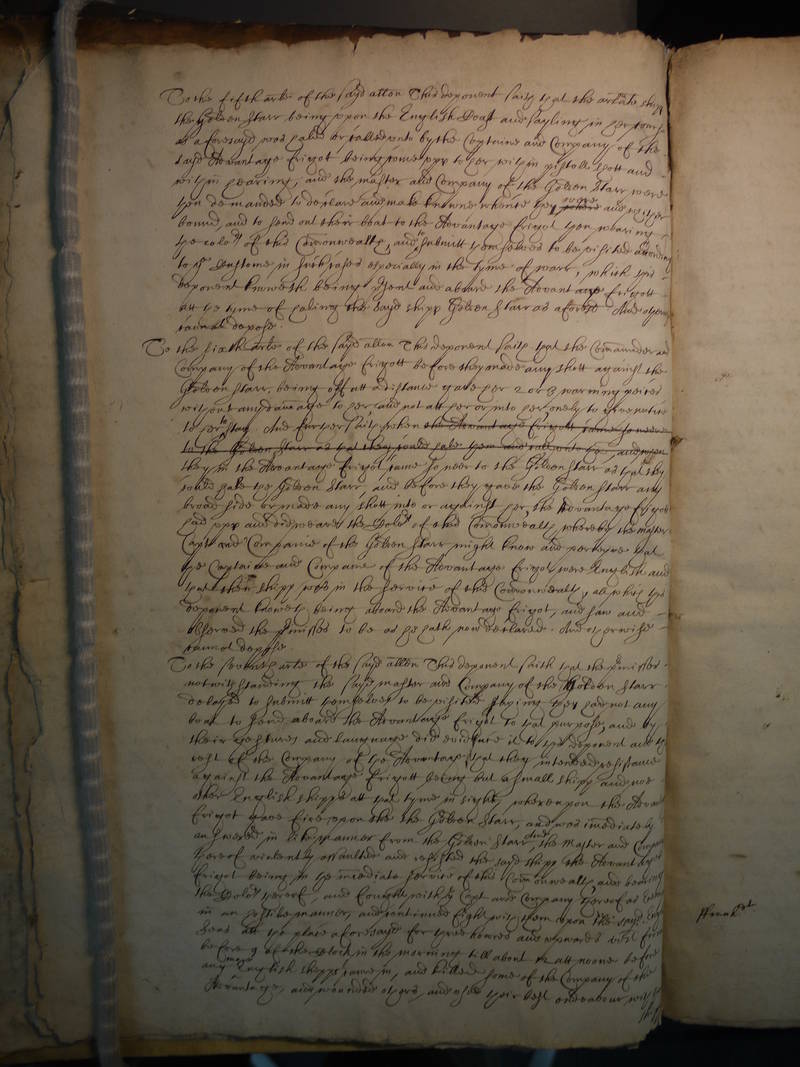 To the fifth arlē of the sayd allon This deponent saith that the arlāte shipp
the Golden Starr being upon the English Coast and sayling in her course
as aforesayd was haled or called unto by the Captaine and Company of the
sayd Advantage Frigot being come upp to her within pistoll shott and
within hearing, and the master and Company of the Golden Starr were
then demanded to declare and make knowne whence they were and whither
bound, and to send out their boat to the Advantage Frigot then wearing
the colors of this Comonwealth, and to submitt themselves to be visited according
to the Custome in such cases especially in the tyme of warr, which this
deponent knoweth being psent and aboard the Advantage Frigott
att the tyme of haling the sayd shipp Golden Starr as aforesd. And otherwise
cannot depose.
To the sixth arlē of the sayd allon This deponent saith that the Comannder and
Company of the Advantage Frigott before they made any shott against the
Golden Starr, being off att a distance gave her 2 or 3 warning peices
without any damage to her, and not att her or into her onely to give notice
to her to stay. And further saith when the Advantage Frigot came so neere
to the Golden Starr as that they could hale them and call unto them, and when
they in the Advantage Frigot came so neer to the Golden Starr as that they
could hale the Golden Starr, and before they gave the Golden Starr any
broad side or made any shott into or against her, the Advantage Frigot
had upp and did weare the Colors of this Comonwealth, whereby the master
Capt and Companie of the Golden Starr might know and perceive that
the Captaine and Companie of the Advantage Frigot were English and
that their shipp was in the service of this Comonwealth, all which this
deponent knoweth being aboard the Advantage Frigot, and saw and
observed the pmisses to be as he hath now declared. And otherwise
cannot depose.
To the seventh arlē of the sayd allon This deponent saith that the pmisses
notwithstanding the sayd master and Company of the Golden Starr
delayed to submitt themselves to be visited saying they had not any
boat to send aboard the Advantage Frigot to that purpose, and by
their gestures and language did evidence it to this deponent and the
rest of the Company of the Advantage that they intended resistance
against the Advantage Frigott being but a small shipp and noe
other English shipps att that tyme in sight, whereupon the Advantage
Frigot gave fire upon the the Golden Starr, and was imediately
answered in like manner from the Golden Starr, and the Master and Company
thereof violently assaulted and resisted the sayd shipp the Advantage
Frigot being in the imediate service of this Comonwealth and bearing
the Colors thereof, and fought with the Capt and Company thereof as
in an hostile manner, and continued fight with them upon the sayd
Seas att the place aforesayd for three houres and upwards viz from
before 9 of the clock in the morning till about 12 att noone before
any more English shipps came in, and killed some of the Company of the
Advantage, and wounded others, and used their best endeavour with